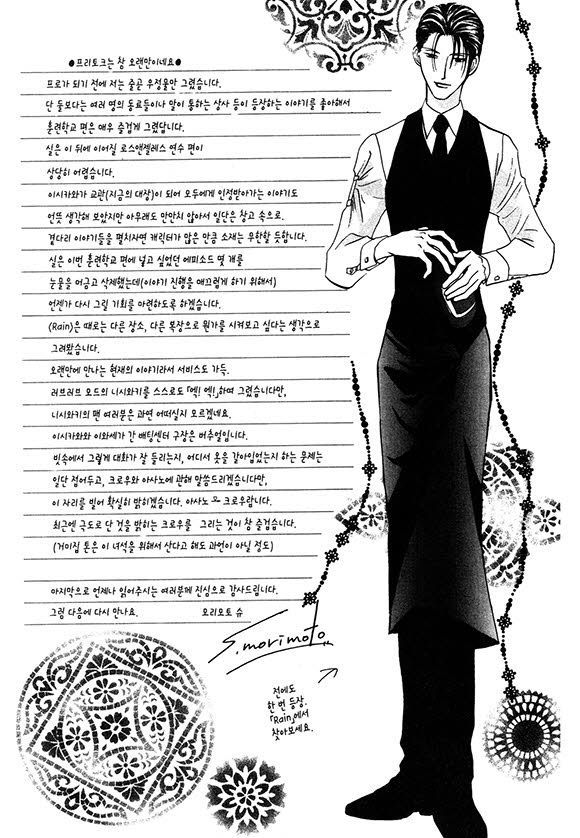 ●프리토크는 참 오랜만이네요●
프로가 되기 전에 저는 줄곧 우정물만 그렸습니다.
단 둘보다는 여러 명의 동료들이나 말이 통하는 상사 등이 등장하는 이야기를 좋아해서
훈련학교 편은 매우 즐겁게 그렸답니다.
실은 이 뒤에 이어질 로스앤젤레스 연수 편이
상당히 어렵습니다.
이시카와가 교관(지금의 대장)이 되어 모두에게 인정받아가는 이야기도
언뜻 생각해 보았지만 아무래도 만만치 않아서 일단은 창고 속으로.
곁다리 이야기들을 펼치자면 캐릭터가 많은 만큼 소재는 무한할 듯합니다.
실은 이번 훈련학교 편에 넣고 싶었던 에피소드 몇 개를
눈물을 머금고 삭제했는데(이야기 진행을 매끄럽게 하기 위해서)
언젠가 다시 그릴 기회를 마련하도록 하겠습니다.
〈Rain〉은 때로는 다른 장소, 다른 복장으로 뭔가를 시켜보고 싶다는 생각으로
그려봤습니다.
오랜만에 만나는 현재의 이야기라서 서비스도 가득.
러브러브 모드의 니시와키를 스스로도 「엑! 엑!」하며 그렸습니다만,
니시와키의 팬 여러분은 과연 어떠실지 모르겠네요.
이시카와와 이와세가 간 배팅센터 구장은 버추얼입니다.
빗속에서 그렇게 대화가 잘 들리는지, 어디서 옷을 갈아입었는지 하는 문제는
일단 접어두고, 크로우와 아사노에 관해 말씀드리겠습니다만,
이 자리를 빌어 확실히 밝히겠습니다. 아사노 크로우랍니다.
최근엔 극도로 단 것을 밝히는 크로우를 그리는 것이 참 즐겁습니다.
(거미집 톤은 이 녀석을 위해서 산다고 해도 과언이 아닐 정도)
마지막으로 언제나 읽어주시는 여러분께 진심으로 감사드립니다.
그럼 다음에 다시 만나요. 모리모토 슈
S.morimoto
전에도
한 번 등장.
「Rain」에서
찾아보세요.